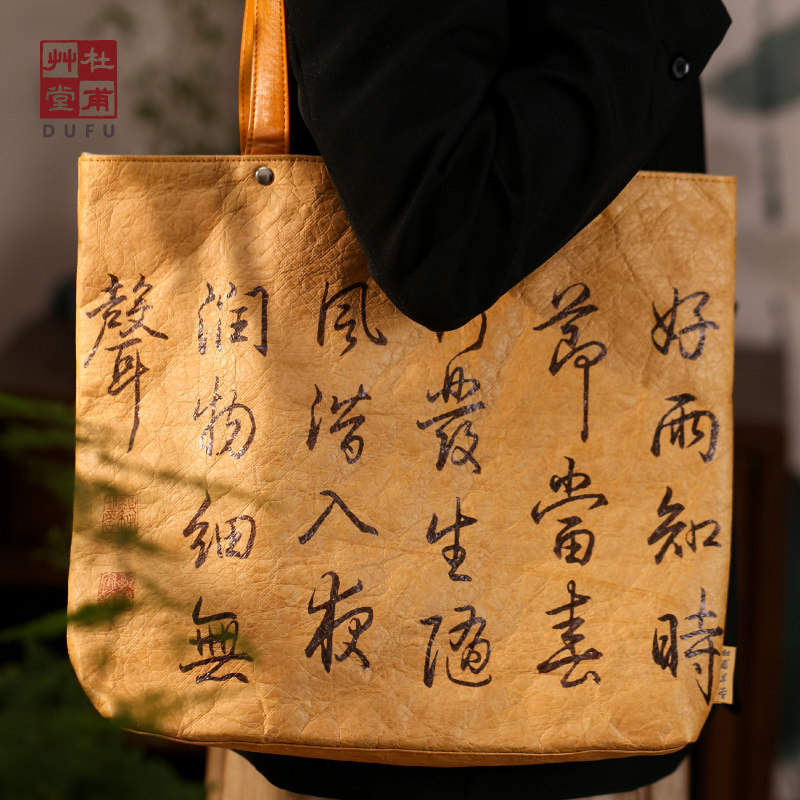 杜甫
艸堂
DUFU
好雨知時
節當春
發生隨
風潛入夜
潤物細無
聲